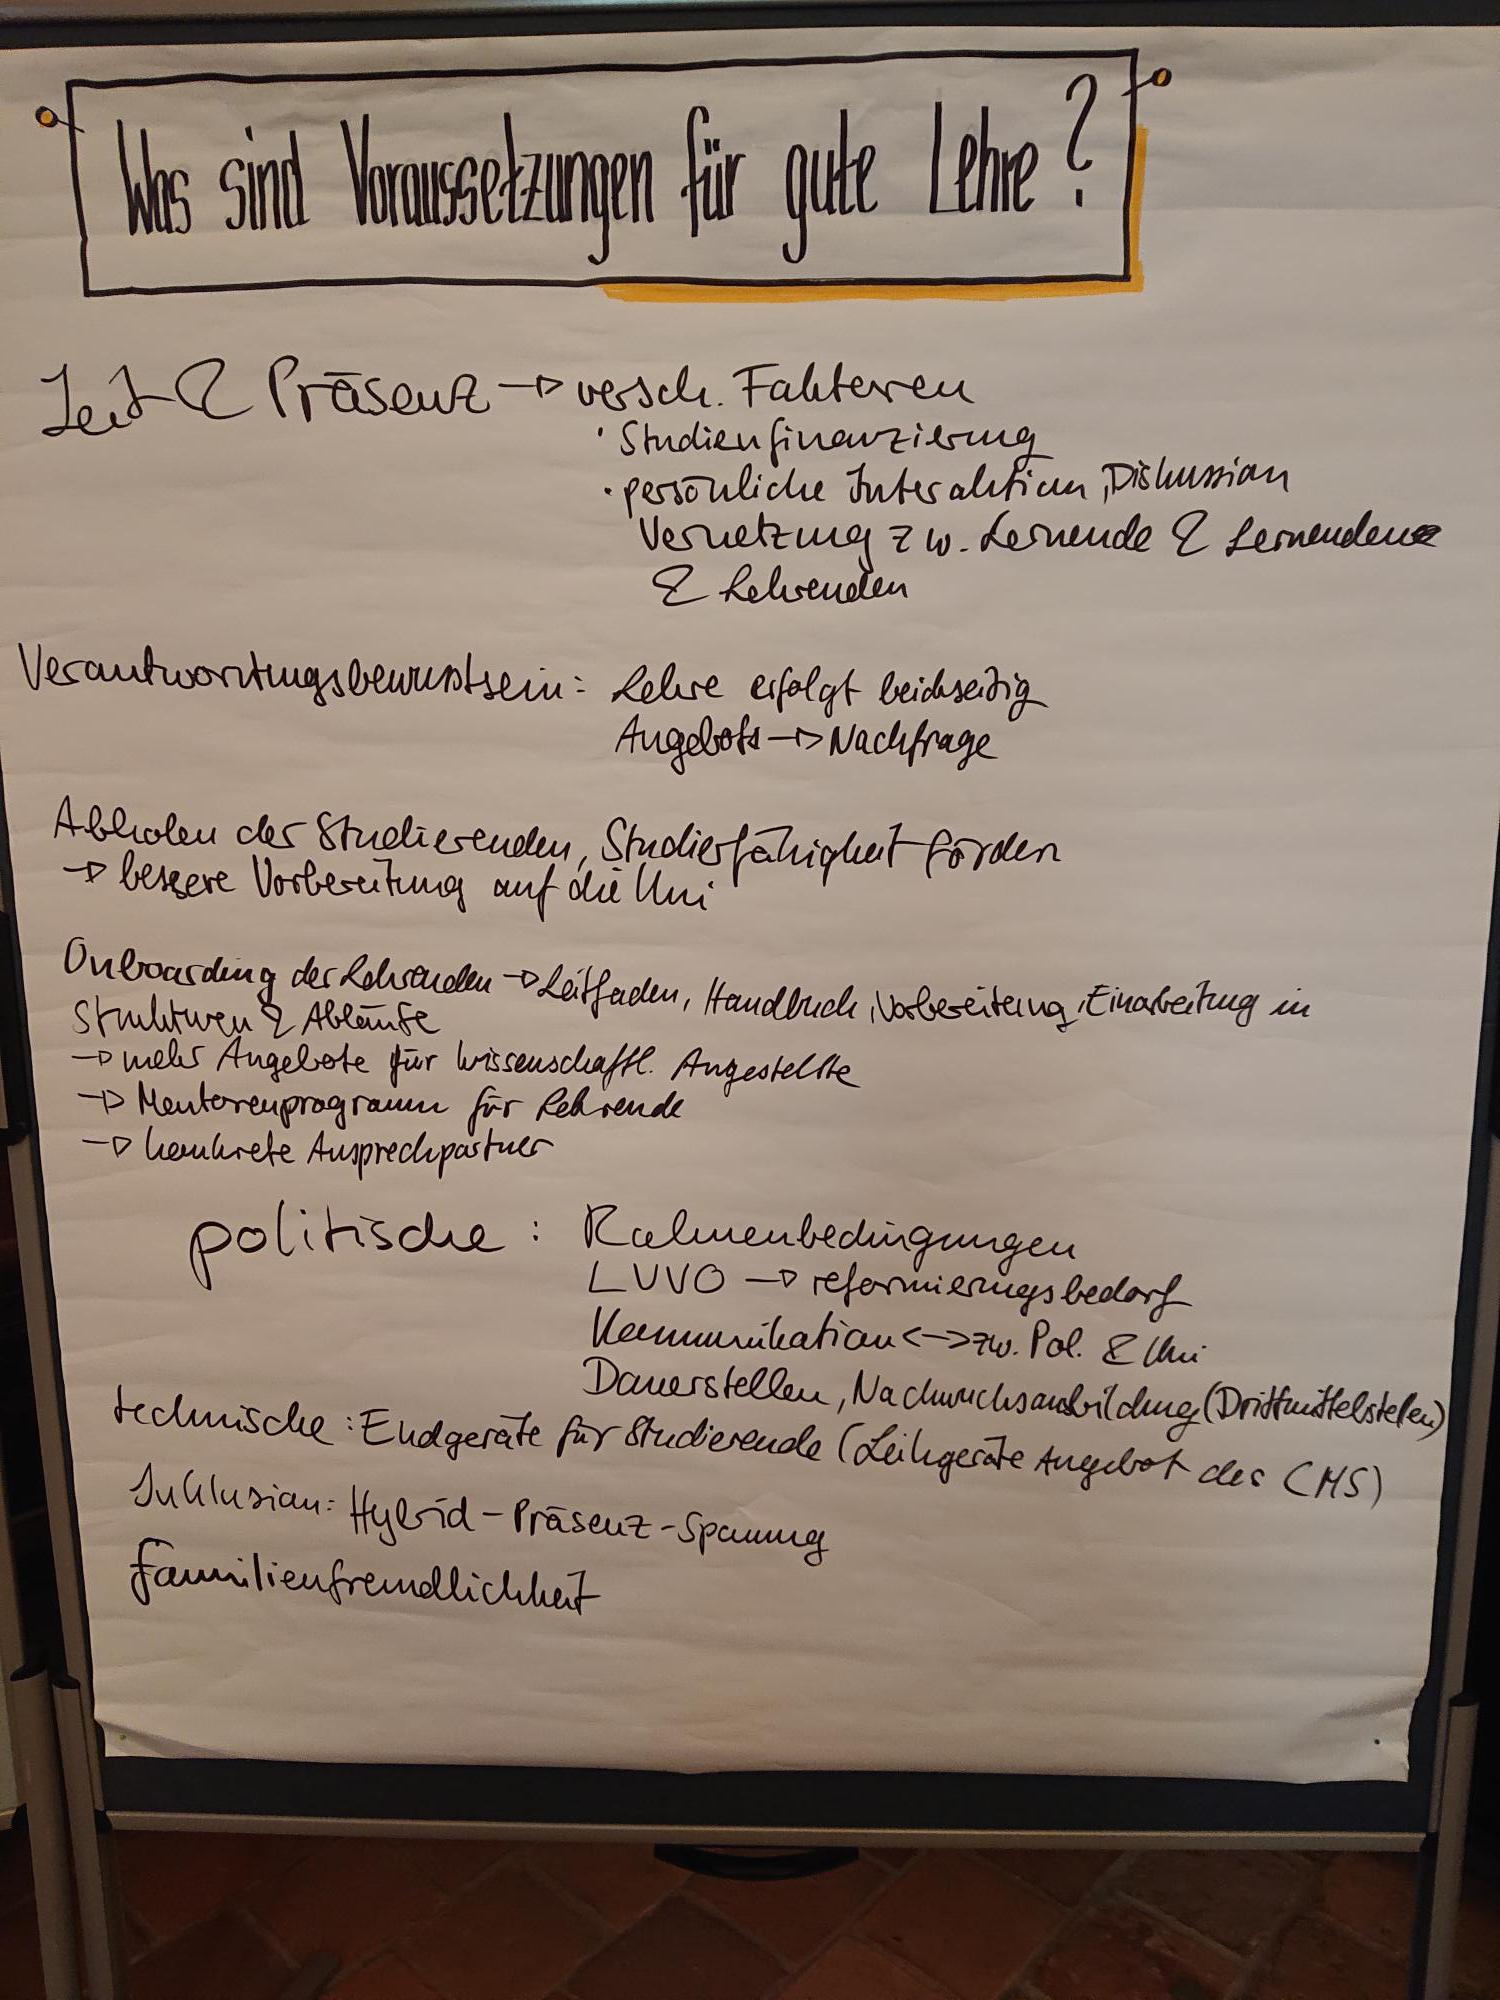 Was sind Voraussetzungen für gute Lehre?
Zeit & Präsenz → versch. Faktoren
· Studienfinanzierung
· persönliche Interaktion, Diskussion
Vernetzung zw. Lernende & Lernenden
& Lehrenden
Verantwortungsbewusstsein: Lehre erfolgt beidseitig
Angebots → Nachfrage
Abholen der Studierenden, Studierfähigkeit fördern
→ bessere Vorbereitung auf die Uni
Onboarding der Lehrenden → Leitfaden, Handbuch, Vorbereitung, Einarbeitung in
Strukturen & Abläufe
→ mehr Angebote für wissenschaftl. Angestellte
→ Mentorenprogramm für Lehrende
→ konkrete Ansprechpartner
politische: Rahmenbedingungen
LVVO → reformierungsbedarf
Kommunikation <-> zw. Pol. & Uni
Dauerstellen, Nachwuchsausbildung (Drittmittelstellen)
technische: Endgeräte für Studierende (Leihgeräte Angebot des CMS)
Inklusion: Hybrid-Präsenz-Spannung
Familienfreundlichkeit